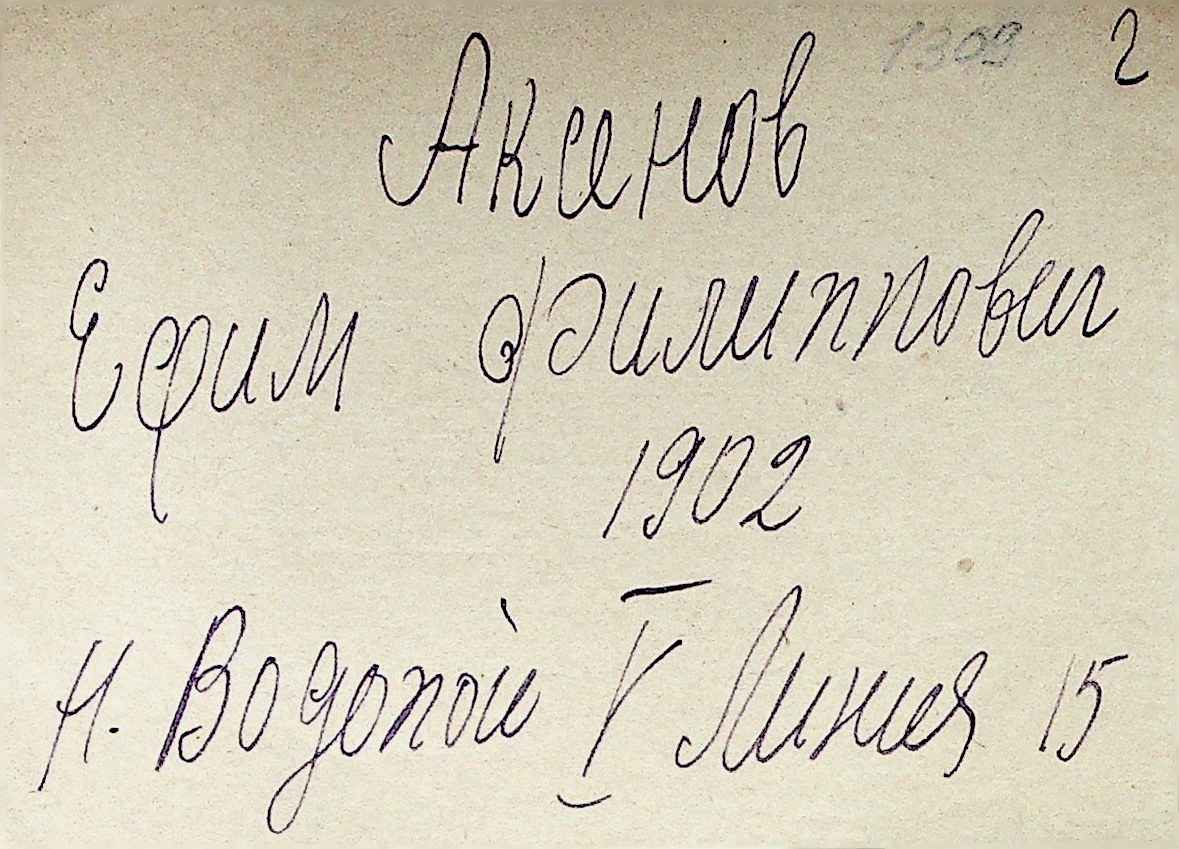 1309 2
Аксенов
Ефим Филиппович
1902
Н. Водопой V Линия 15